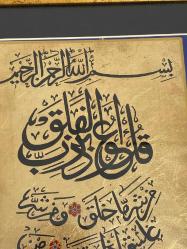 بسم الله الرحمن الرحيم
قل أعوذ برب الفلق
من شر ما خلق ومن شر